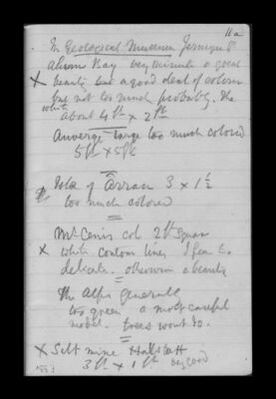 11a
In Geological Museum Jermyn St
Alum Bay very minute a great
X beauty but a good deal of colour
but not too much probably. The
white
about 4 ft x 2 ft
Auvergne large too much colored
5 ft x 5 ft
Isle of Arran 3 x 1½
too much colored
Mt Cenis col 2 ft Square
X white contour lines I fear to
delicate. otherwise a beauty
The Alps generally
too green a most careful
model. trees wont do.
X Salt mine Hallstatt
3 ft x 1 ft very good